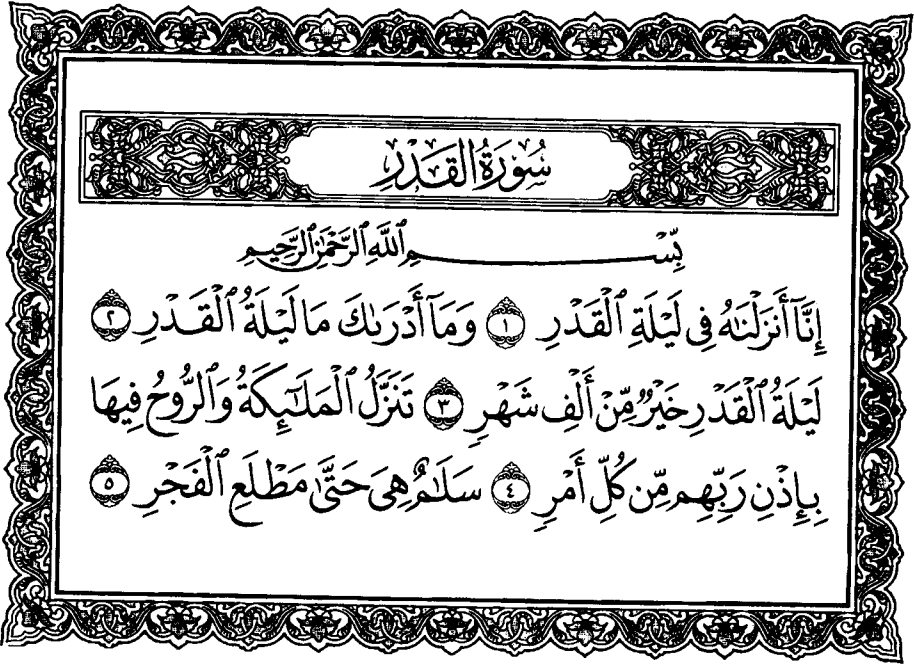 سُورَةُ الْقَدْرِ
بِسْمِ اللَّهِ الرَّحْمَٰنِ الرَّحِيمِ
إِنَّآ أَنزَلْنَٰهُ فِى لَيْلَةِ ٱلْقَدْرِ ١ وَمَآ أَدْرَىٰكَ مَا لَيْلَةُ ٱلْقَدْرِ ٢
لَيْلَةُ ٱلْقَدْرِ خَيْرٌ مِّنْ أَلْفِ شَهْرٍ ٣ تَنَزَّلُ ٱلْمَلَٰٓئِكَةُ وَٱلرُّوحُ فِيهَا
بِإِذْنِ رَبِّهِم مِّن كُلِّ أَمْرٍ ٤ سَلَٰمٌ هِىَ حَتَّىٰ مَطْلَعِ ٱلْفَجْرِ ٥